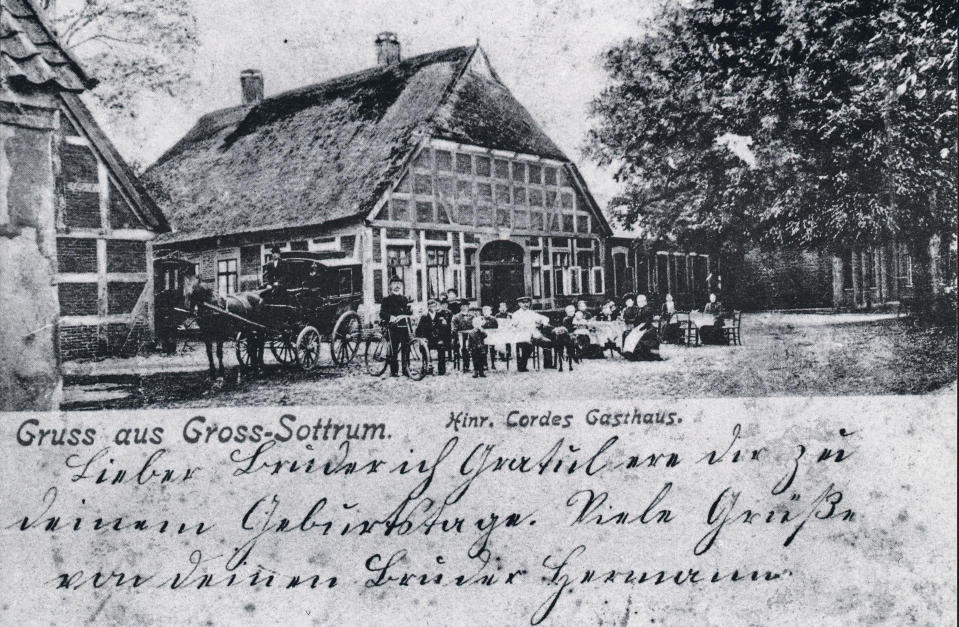 Gruss aus Gross-Sottrum.
Hinr. Cordes Gasthaus.
Lieber Bruder ich Gratulere dir zu
deinem Geburtstage. Viele Grüße
von deinen Bruder Hermann